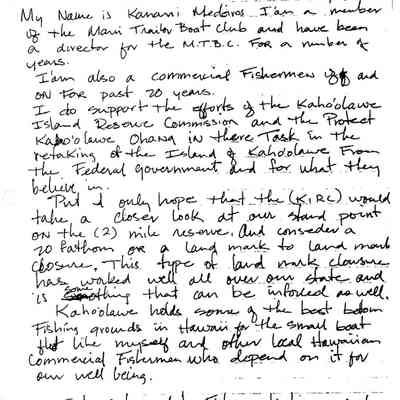 My Name is Kanani Medeiros. I'am a member
of the Maui Trailor Boat Club and have been
a director for the M.T.B.C. For a number of
years.
I'am also a commercial Fishermen off and
on For past 20 years.
I do support the efforts of the Kaho'olawe
Island Reserve Commission and the Protect
Kaho'olawe Ohana in there Task in the
retaking of the Island of Kaho'olawe From
the Federal government and for what they
believe in.
But I only hope that the (KIRC) would
take a closer look at our stand point
on the (2) mile reserve. And consider a
20 fathom or a land mark to land mark
closure. This type of land mark closure
has worked well all over our state and
is something that can be inforced as well.
Kaho'olawe holds some of the best bottom
Fishing grounds in Hawaii for the small boat
like myself and other local Hawaiian
Commercial Fishermen who depend on it for
our well being.